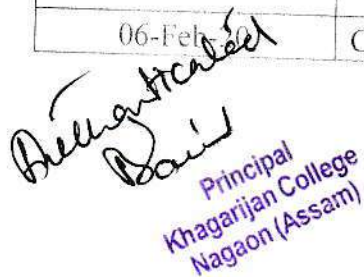 06-Feb-20 C
Authenticated
Principal
Khagarijan College
Nagaon (Assam)